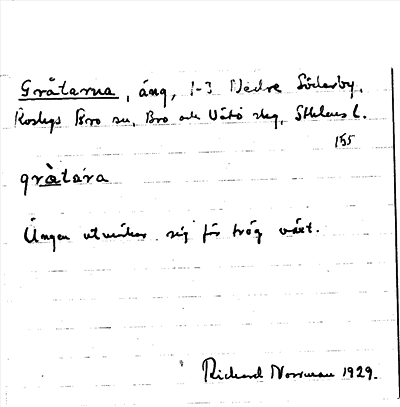 Gråtarna, äng, 1-3 Nedre Söderby,
Roslags Bro sn, Bro och Vätö skg, Sthlms l.
155
gràtara
Ängen utmärker sig för trög växt.
Richard Norrman 1929.